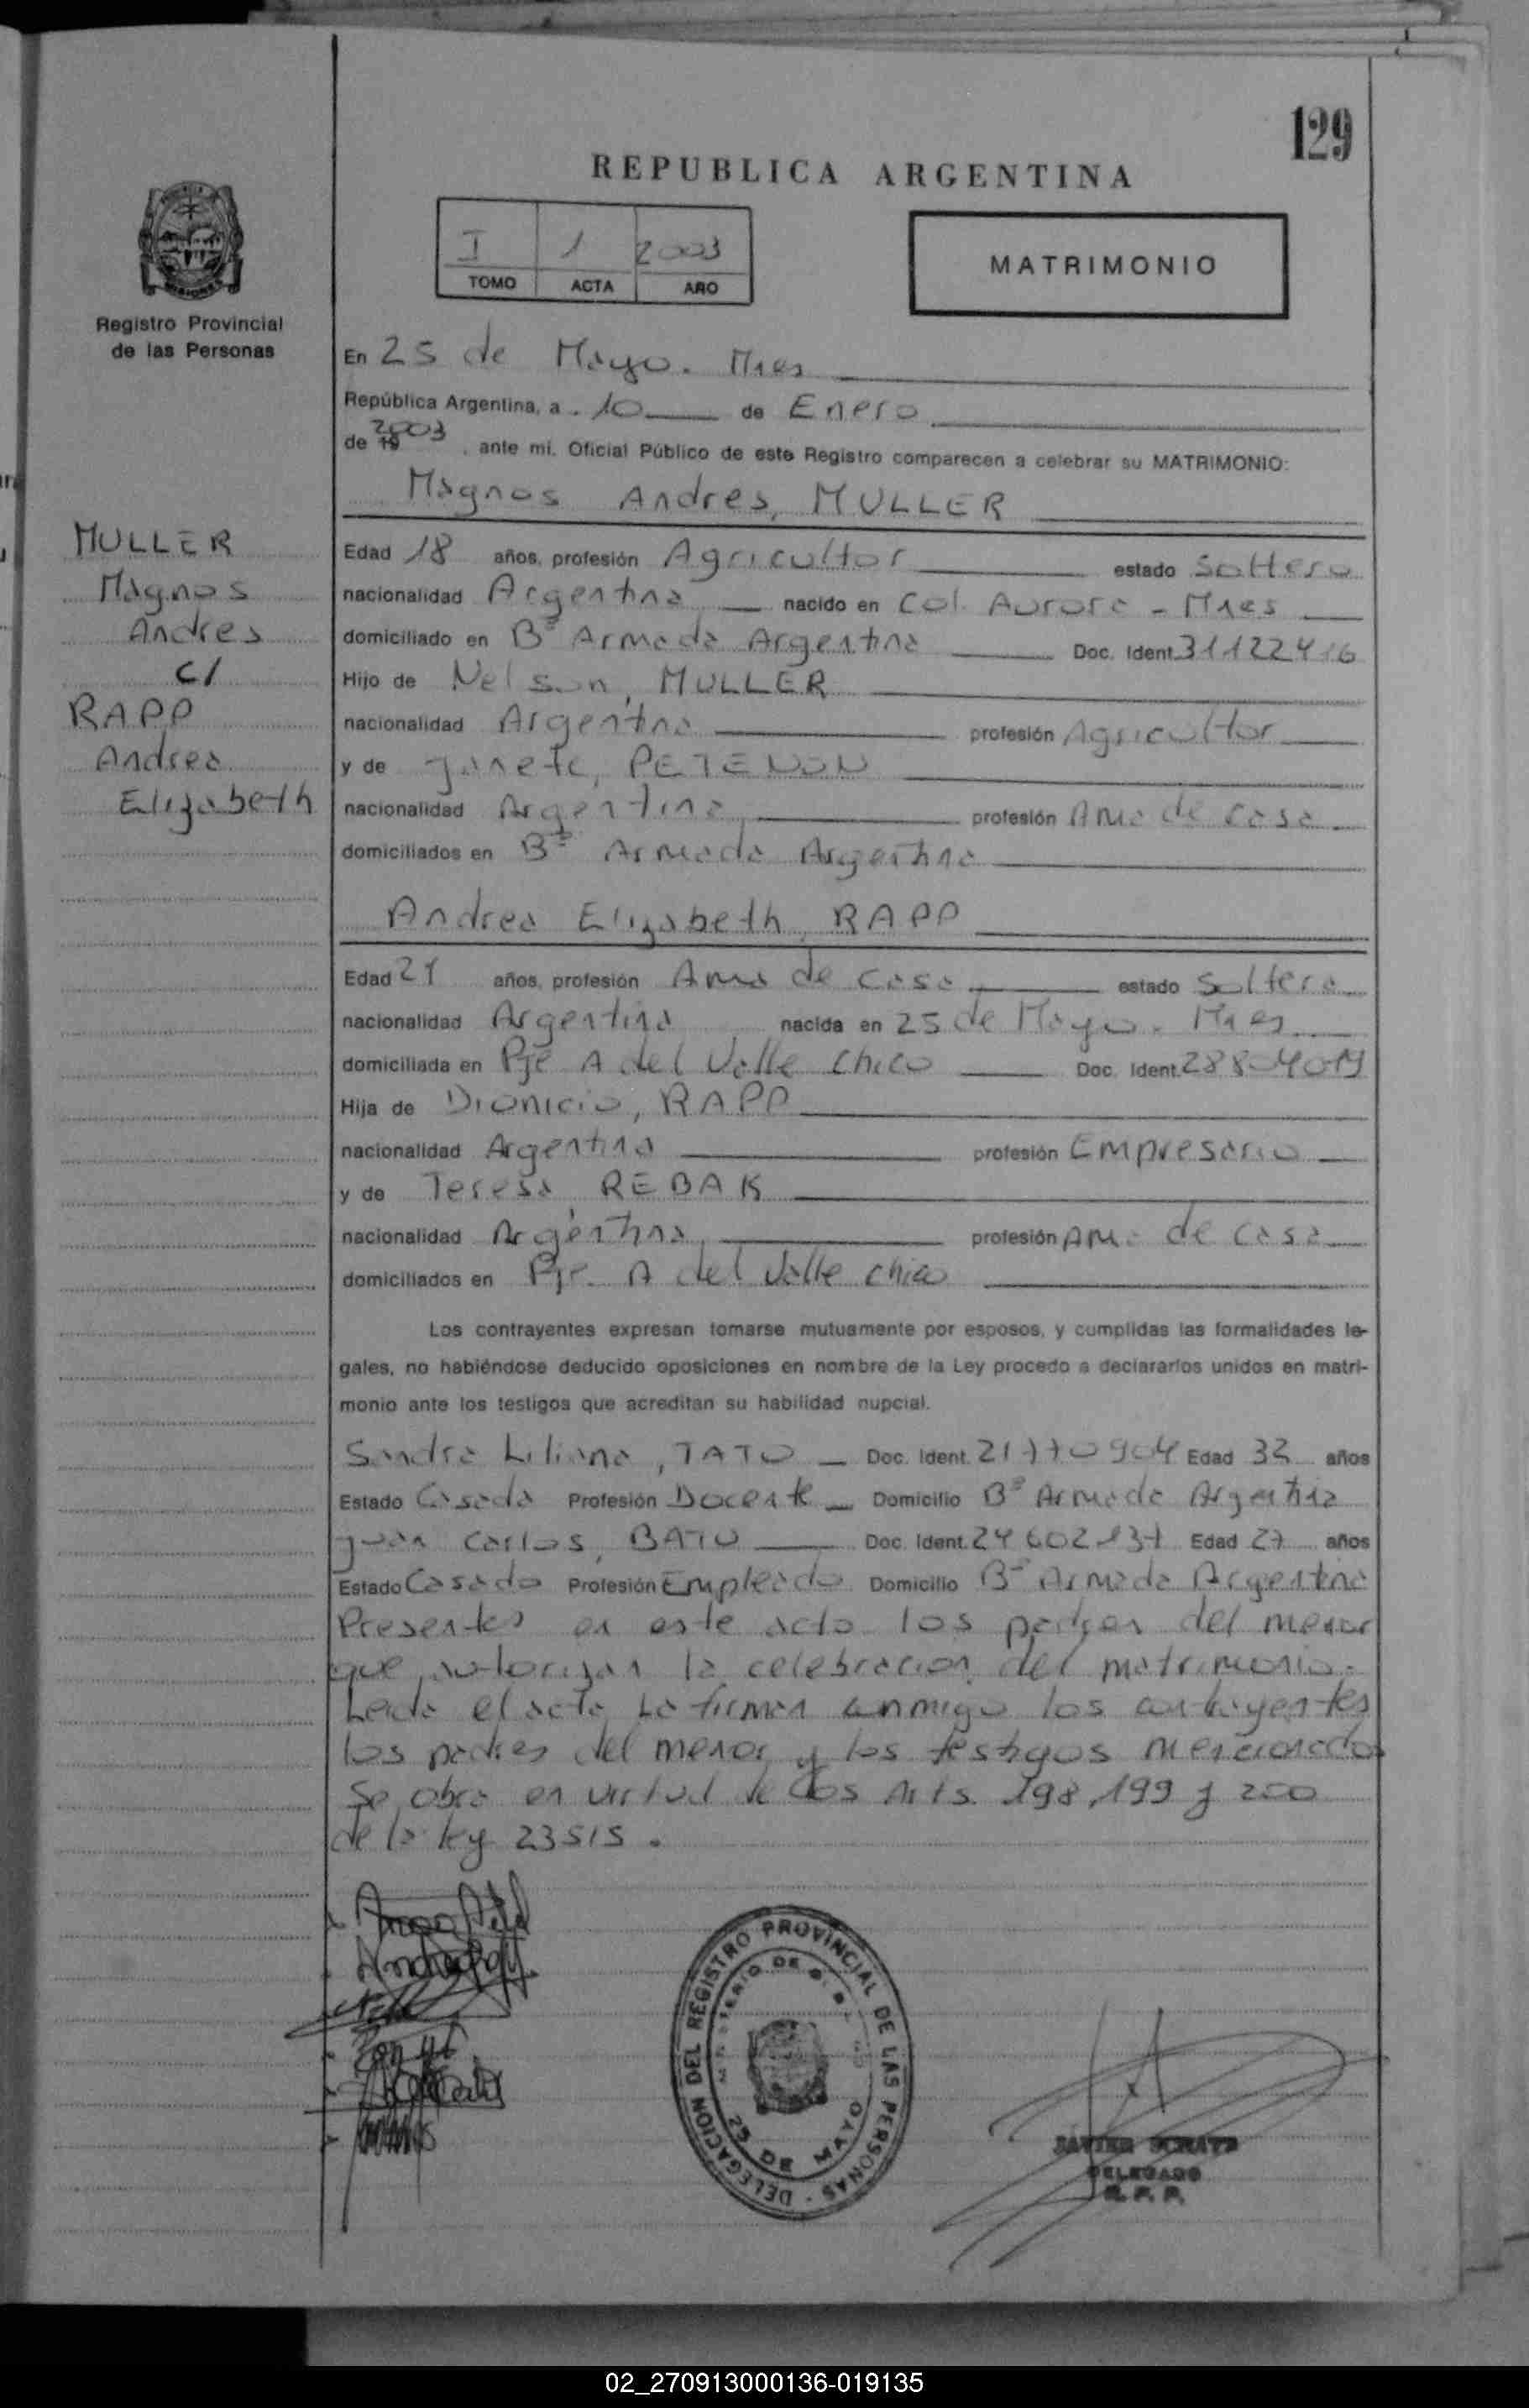 129
REPUBLICA ARGENTINA
I 1 2003
TOMO ACTA AÑO
MATRIMONIO
MISIONES
Registro Provincial
de las Personas
En 25 de Mayo. Mnes
República Argentina, a 10 de Enero
de 19 2003, ante mi. Oficial Público de este Registro comparecen a celebrar su MATRIMONIO:
Magnos Andres, MULLER
MULLER
Magnos
Andres
c/
RAPP
Andrea
Elizabeth
Edad 18 años, profesión Agricultor estado Soltero
nacionalidad Argentina nacido en Col. Aurora - Mnes
domiciliado en Bº Armada Argentina Doc. Ident. 31122416
Hijo de Nelson, MULLER
nacionalidad Argentina profesión Agricultor
y de Janete, PETENON
nacionalidad Argentina profesión Ama de casa
domiciliados en Bº Armada Argentina
Andrea Elizabeth, RAPP
Edad 21 años, profesión Ama de casa estado Soltera
nacionalidad Argentina nacida en 25 de Mayo. Mnes
domiciliada en Pje A del Valle Chico Doc. Ident. 28804019
Hija de Dionicio, RAPP
nacionalidad Argentina profesión Empresario
y de Teresa, REBAK
nacionalidad Argentina profesión Ama de casa
domiciliados en Pje. A del Valle chico
Los contrayentes expresan tomarse mutuamente por esposos, y cumplidas las formalidades le-
gales, no habiéndose deducido oposiciones en nombre de la Ley procedo a declararlos unidos en matri-
monio ante los testigos que acreditan su habilidad nupcial.
Sandra Liliana, TATO Doc. Ident. 21770904 Edad 32 años
Estado Casada Profesión Docente Domicilio Bº Armada Argentina
Juan Carlos, BATU Doc. Ident. 24602137 Edad 27 años
Estado Casado Profesión Empleado Domicilio Bº Armada Argentina
Presentes en este acto los padres del menor
que autorizan la celebracion del matrimonio.
Leida el acta La firman conmigo los contrayentes
los padres del menor y los testigos mencionados
Se obra en virtud de los Arts. 198, 199 y 200
de la ley 23515.
DELEGACION DEL REGISTRO PROVINCIAL DE LAS PERSONAS
25 DE MAYO
JAVIER
DELEGADO
R. P. P.
02_270913000136-019135